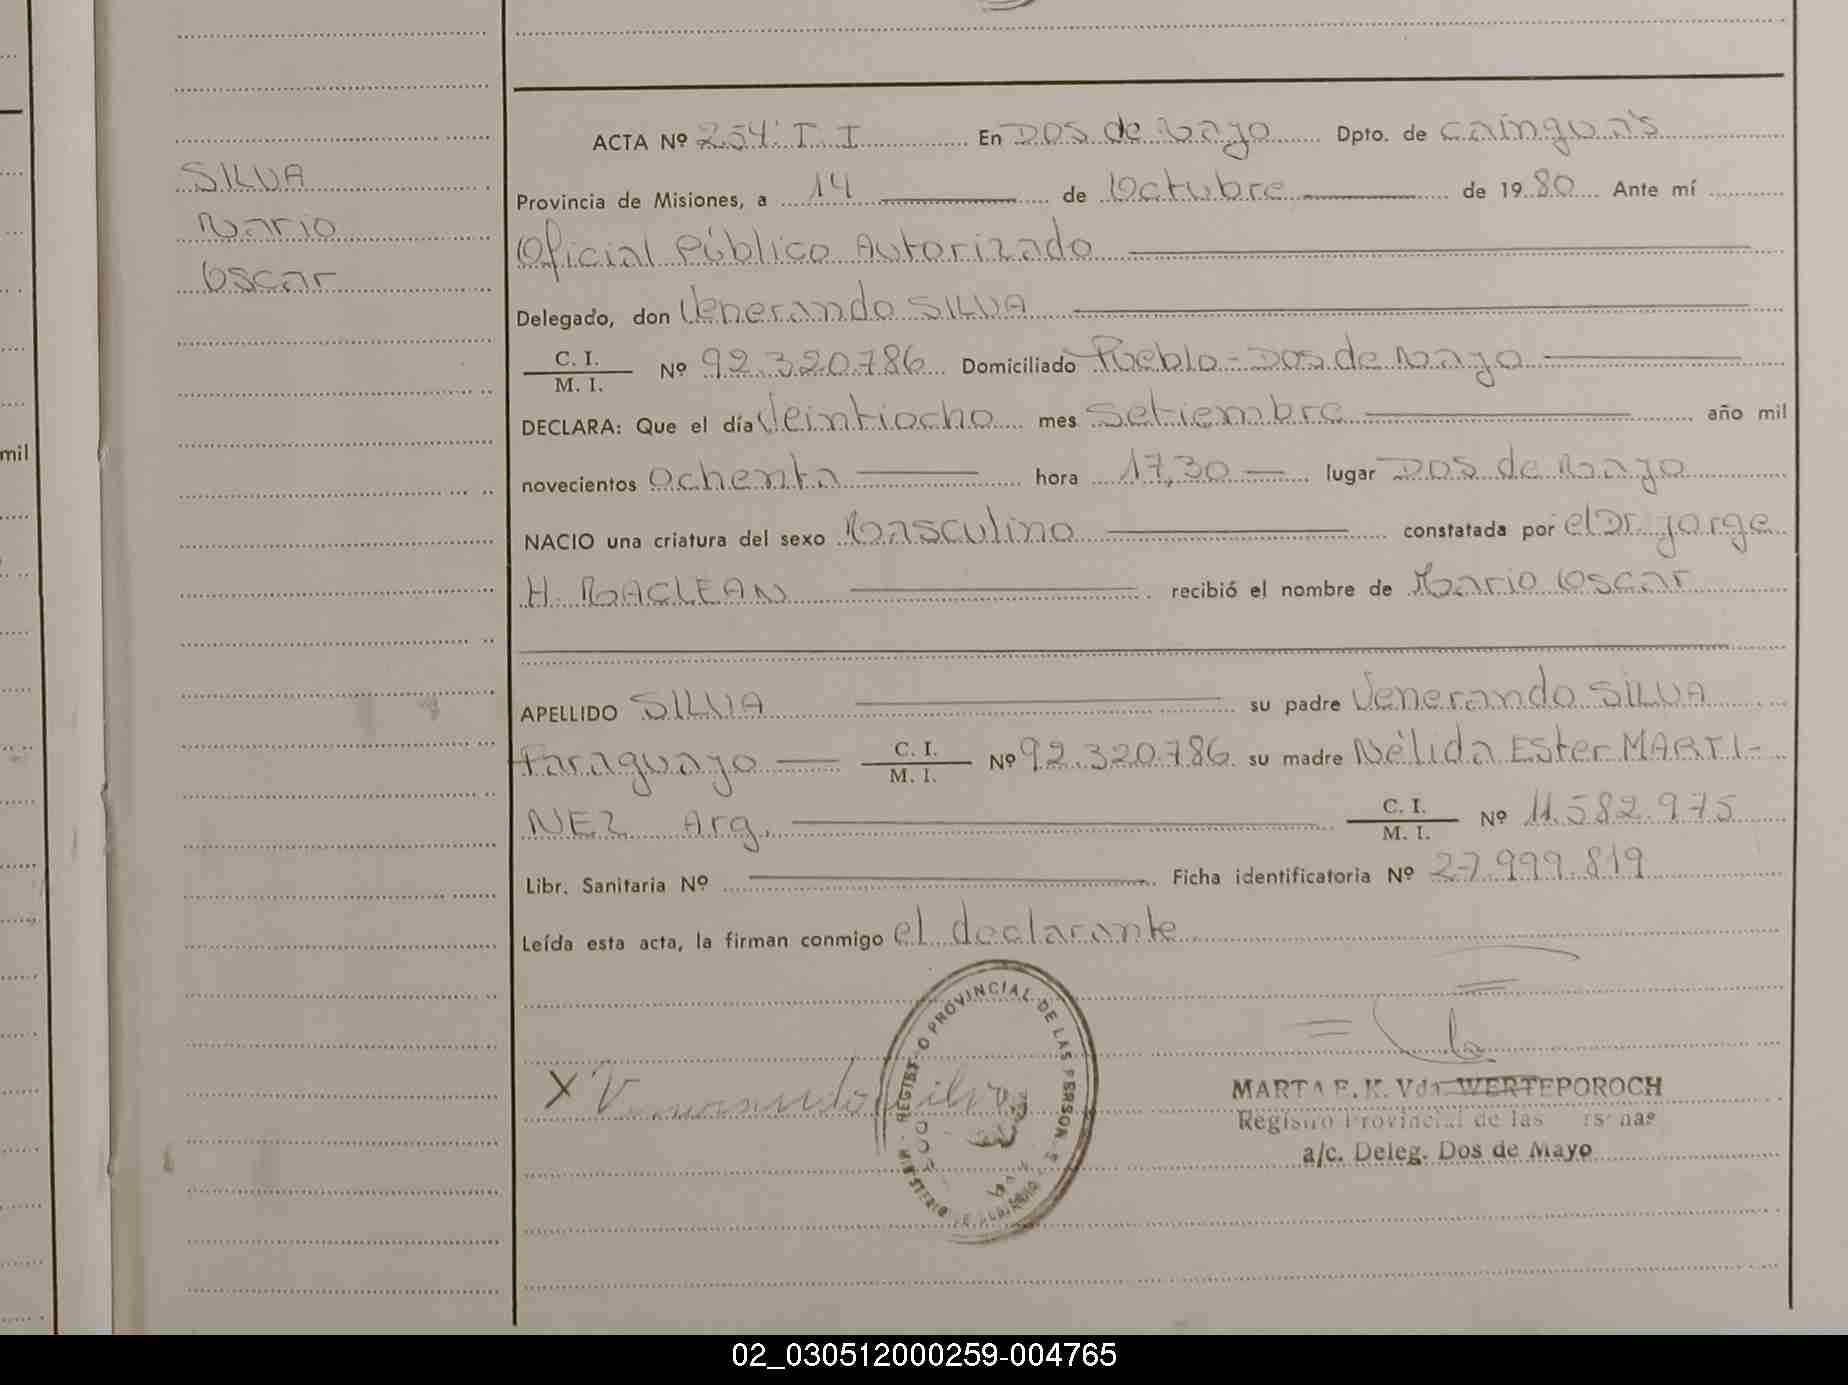 SILVA
Mario
Oscar
mil
ACTA Nº 254. T. I. En Dos de Mayo Dpto. de Cainguás
Provincia de Misiones, a 14 de Octubre de 1980 Ante mí
Oficial Público Autorizado
Delegado, don Venerando SILVA
C. I.
M. I. Nº 92.320.786 Domiciliado Pueblo-Dos de Mayo
DECLARA: Que el día Veintiocho mes Setiembre año mil
novecientos ochenta hora 17,30 lugar Dos de Mayo
NACIO una criatura del sexo Masculino constatada por el Dr. Jorge
H. MACLEAN recibió el nombre de Mario Oscar
APELLIDO SILVA su padre Venerando SILVA
Paraguayo C. I.
M. I. Nº 92.320.786 su madre Nélida Ester MARTI-
NEZ Arg. C. I.
M. I. Nº 11.582.975
Libr. Sanitaria Nº Ficha identificatoria Nº 27.999.819
Leída esta acta, la firman conmigo el declarante
PROVINCIAL DE LAS
X Venerando Silva
MARTA E. K. Vda. WERTEPOROCH
Registro Provincial de las
a/c. Deleg. Dos de Mayo
02_030512000259-004765